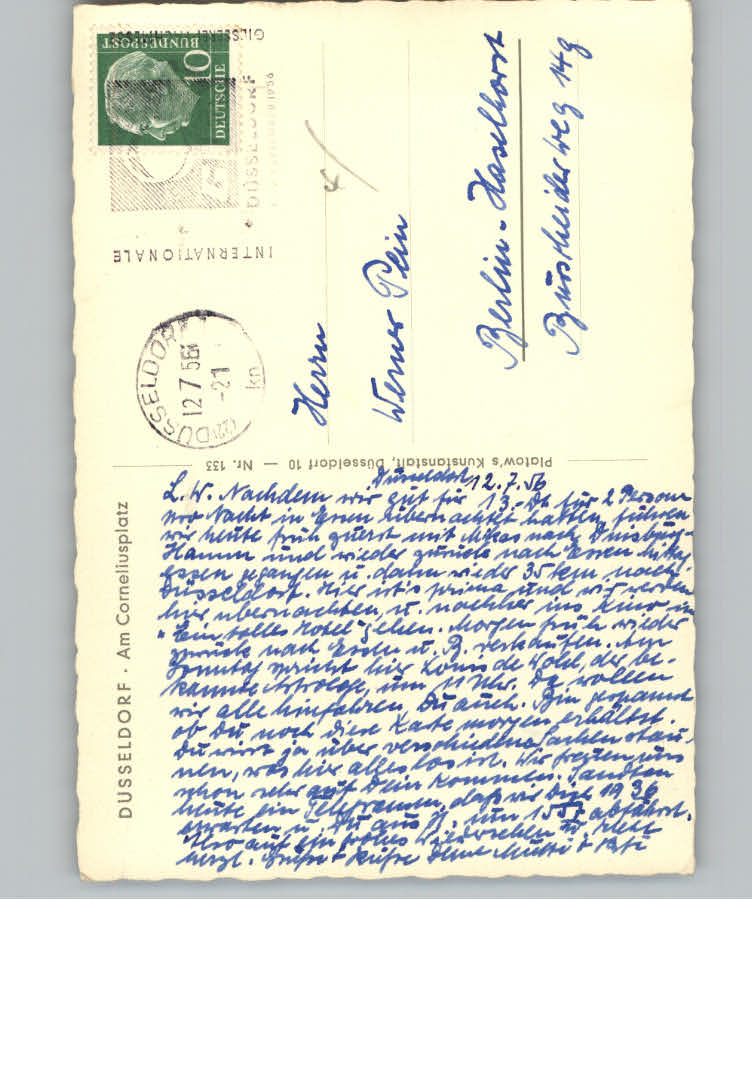 DÜSSELDORF · Am Corneliusplatz
Platow's Kunstanstalt, Düsseldorf 10 — Nr. 133
DEUTSCHE
BUNDESPOST
10
INTERNATIONALE
DÜSSELDORF
1956
(22a) DÜSSELDORF
12.7.56
-21
kn
Herrn
Werner Pein
Berlin-Haselhorst
Burscheider Weg 14g
Düsseldorf 12.7.56
L. W. Nachdem wir gut für 13.- DM für 2 Personen
pro Nacht in Essen übernachtet hatten, fuhren
wir heute früh zuerst mit nach Duisburg-
Hamm und wieder zurück nach Essen Mittag
essen gegangen u. dann wieder 35 km nach
Düsseldorf. Hier ist's prima und wir werden
hier übernachten, u. nachher ins Kino in
"Ein tolles Hotel" gehen. Morgen früh wieder
zurück nach Essen u. B. verkaufen. Am
Sonntag spricht hier de Wohl, der be-
kannte Astrologe, um 11 Uhr. Da wollen
wir alle hinfahren, Du auch. Bin gespannt
ob Du noch diese Karte morgen erhältst.
Du wirst ja über verschiedene Sachen stau-
nen, was hier alles los ist. Wir freuen uns
schon sehr auf Dein Kommen. Sandten
heute ein Telegramm, daß wir Dich 19 36
erwarten u. Du aus H. um 15 57 abfährst.
Also auf ein frohes Wiedersehen u. viele
herzl. Grüße + Küsse Deine Mutti +